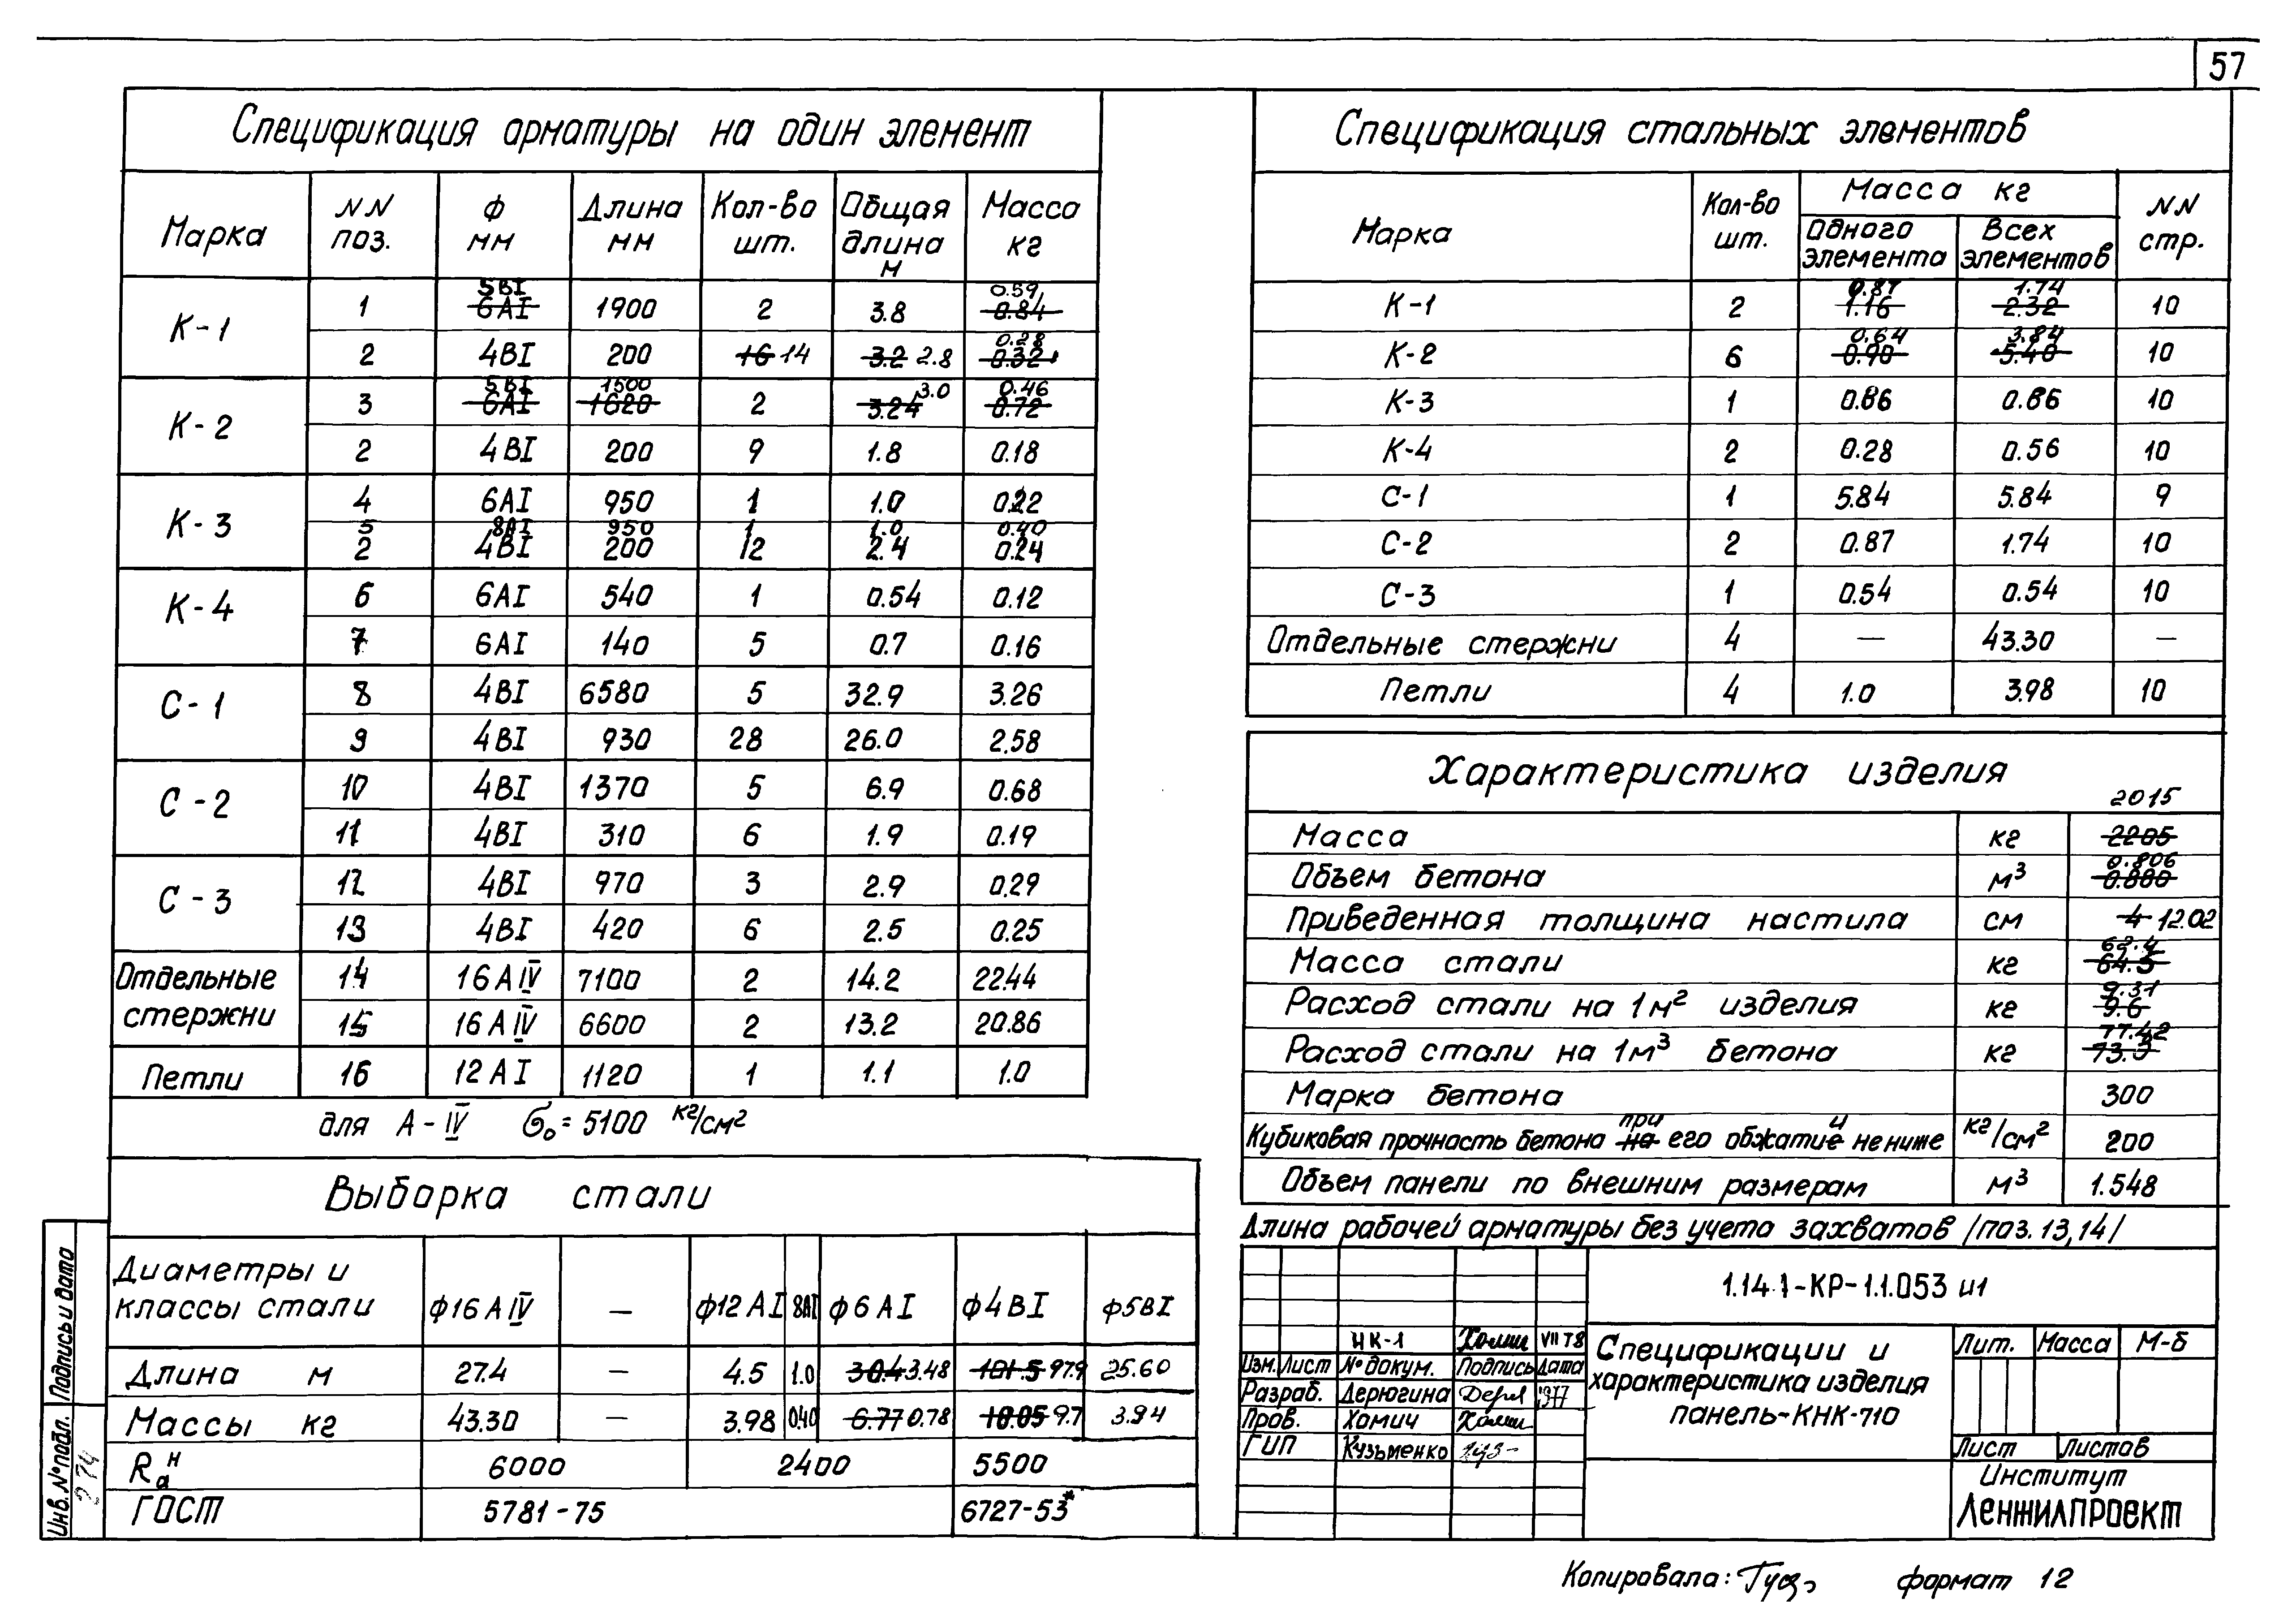 57
Спецификация арматуры на один элемент
Марка NN поз. ф мм Длина мм Кол-во шт. Общая длина м Масса кг
К-1 1 5ВI 6АI 1900 2 3.8 0.59 0.84
2 4ВI 200 16 14 3.2 2.8 0.28 0.32
К-2 3 5ВI 6АI 1500 1620 2 3.24 3.0 0.46 0.72
2 4ВI 200 9 1.8 0.18
К-3 4 6АI 950 1 1.0 0.22
5 8АI 950 1 1.0 0.40
2 4ВI 200 12 2.4 0.24
К-4 6 6АI 540 1 0.54 0.12
7 6АI 140 5 0.7 0.16
С-1 8 4ВI 6580 5 32.9 3.26
9 4ВI 930 28 26.0 2.58
С-2 10 4ВI 1370 5 6.9 0.68
11 4ВI 310 6 1.9 0.19
С-3 12 4ВI 970 3 2.9 0.29
13 4ВI 420 6 2.5 0.25
Отдельные стержни 14 16АIV 7100 2 14.2 22.44
15 16АIV 6600 2 13.2 20.86
Петли 16 12АI 1120 1 1.1 1.0
для А-IV σ₀=5100 кг/см²
Выборка стали
Диаметры и классы стали ф16АIV — ф12АI 8АI ф6АI ф4ВI ф5ВI
Длина м 27.4 — 4.5 1.0 30.4 3.48 101.5 97.9 25.60
Массы кг 43.30 — 3.98 0.40 6.77 0.78 10.05 9.7 3.94
Rаᴴ 6000 2400 5500
ГОСТ 5781-75 6727-53*
Подпись и дата
Инв. № подл.
274
Спецификация стальных элементов
Марка Кол-во шт. Масса кг NN стр.
Одного элемента Всех элементов
К-1 2 0.87 1.16 1.74 2.32 10
К-2 6 0.64 0.90 3.84 5.40 10
К-3 1 0.86 0.86 10
К-4 2 0.28 0.56 10
С-1 1 5.84 5.84 9
С-2 2 0.87 1.74 10
С-3 1 0.54 0.54 10
Отдельные стержни 4 — 43.30 —
Петли 4 1.0 3.98 10
Характеристика изделия
Масса кг 2015 2205
Объем бетона м³ 0.806 0.880
Приведенная толщина настила см 4 12.02
Масса стали кг 62.4 64.5
Расход стали на 1м² изделия кг 9.31 9.6
Расход стали на 1м³ бетона кг 77.42 73.3
Марка бетона 300
Кубиковая прочность бетона на при его обжатие и не ниже кг/см² 200
Объем панели по внешним размерам м³ 1.548
Длина рабочей арматуры без учета захватов /поз. 13,14/
1.141-КР-1.1.053 и1
НК-1 Хомич VII 78
Изм. Лист № докум. Подпись Дата
Разраб. Дерюгина Дерюг 1977
Пров. Хомич Хомич
ГИП Кузьменко
Спецификации и
характеристика изделия
панель-КНК-710
Лит. Масса М-б
Лист Листов
Институт
ЛЕНЖИЛПРОЕКТ
Копировала: формат 12